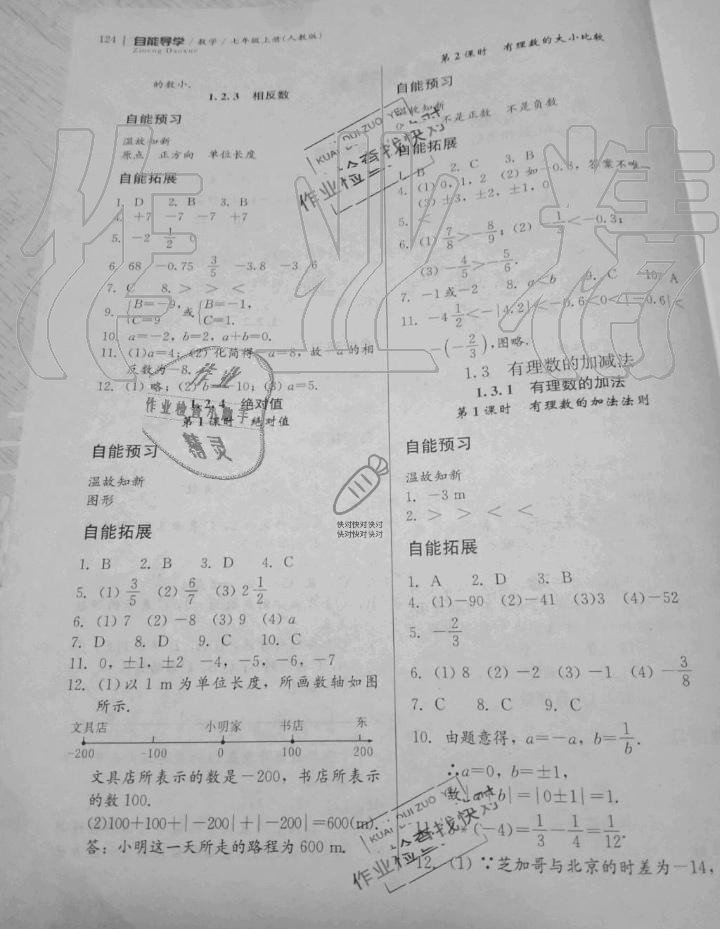 124 自能导学 / 数学 / 七年级上册(人教版)
Zineng Daoxue
的数小.
1.2.3 相反数
自能预习
温故知新
原点 正方向 单位长度
自能拓展
1. D 2. B 3. B
4. +7 -7 -7 +7
5. -2 1/2 0
6. 68 -0.75 3/5 -3.8 -3 6
7. C 8. > >
9. {B=-9, C=9 或{B=-1, C=1.
10. a=-2, b=2, a+b=0.
11. (1)a=4; (2)化简得 -a=8, 故 a的相
反数为-8.
12. (1)略; (2)b= 10; (3)a=5.
1.2.4 绝对值
第1课时 绝对值
自能预习
温故知新
图形
自能拓展
1. B 2. B 3. D 4. C
5. (1)3/5 (2)6/7 (3)2 1/2
6. (1)7 (2)-8 (3)9 (4)a
7. D 8. D 9. C 10. C
11. 0, ±1, ±2 -4, -5, -6, -7
12. (1)以 1 m 为单位长度, 所画数轴如图
所示.
文具店 小明家 书店 东
-200 -100 0 100 200
文具店所表示的数是-200, 书店所表示
的数100.
(2)100+100+|-200|+|-200|=600(m).
答: 小明这一天所走的路程为 600 m.
第2课时 有理数的大小比较
自能预习
温故知新
不是正数 不是负数
自能拓展
1. B 2. C 3. B
4. (1)0, 1, 2 (2)如-0.8, 答案不唯一
(3)±3, ±2, ±1, 0
5. <
6. (1)-7/8 > -8/9; (2)- <-0.3;
(3)-4/5 > -5/6.
7. -1或-2 8. a<b 9. C 10. A
11. -4 1/2 <-|4.2|< -0.6 <0<|-0.6|<
-(-2/3), 图略.
1.3 有理数的加减法
1.3.1 有理数的加法
第1课时 有理数的加法法则
自能预习
温故知新
1. -3 m
2. > > < <
自能拓展
1. A 2. D 3. B
4. (1)-90 (2)-41 (3)3 (4)-52
5. -2/3
6. (1)8 (2)-2 (3)-1 (4)-3/8
7. C 8. C 9. C
10. 由题意得, a=-a, b=1/b.
∴a=0, b=±1,
b|=|0±1|=1.
11. (-4)=1/3-1/4=1/12.
12. (1)∵芝加哥与北京的时差为-14,
作业精
KUAI DUI ZUO YE
作业检查找快对
作业
作业检查小助手
精灵
快对快对快对
快对快对快对
KUAI DUI ZUO YE
作业检查找快对